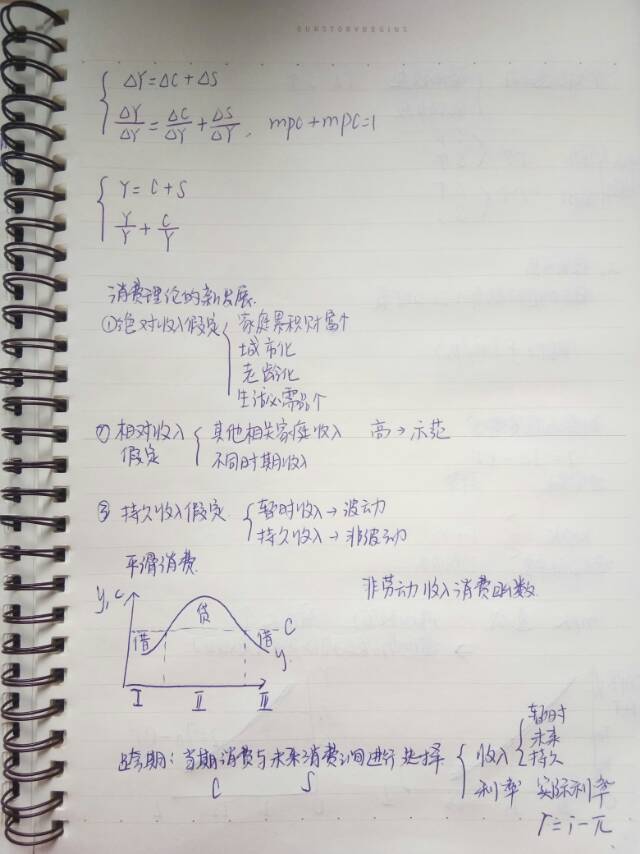 SUNSTORYBEGINS
ΔY=ΔC+ΔS
ΔY/ΔY=ΔC/ΔY+ΔS/ΔY, mpc+mpc=1
Y=C+S
Y/Y+C/Y
消费理论的新发展.
①绝对收入假定 家庭累积财富↑
城市化
老龄化
生活必需品↑
② 相对收入假定 其他相关家庭收入 高→示范
不同时期收入
③ 持久收入假定 暂时收入→波动
持久收入→非波动
平滑消费.
非劳动收入消费函数
y,c
借 贷 借 C
y.
Ⅰ Ⅱ Ⅲ
跨期:当期消费与未来消费之间进行选择 收入 暂时
未来
持久
C S
利率 实际利率
r=i-π